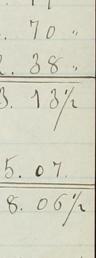 . 70 "
. 38 "
3. 13½
5. 07.
8. 06½